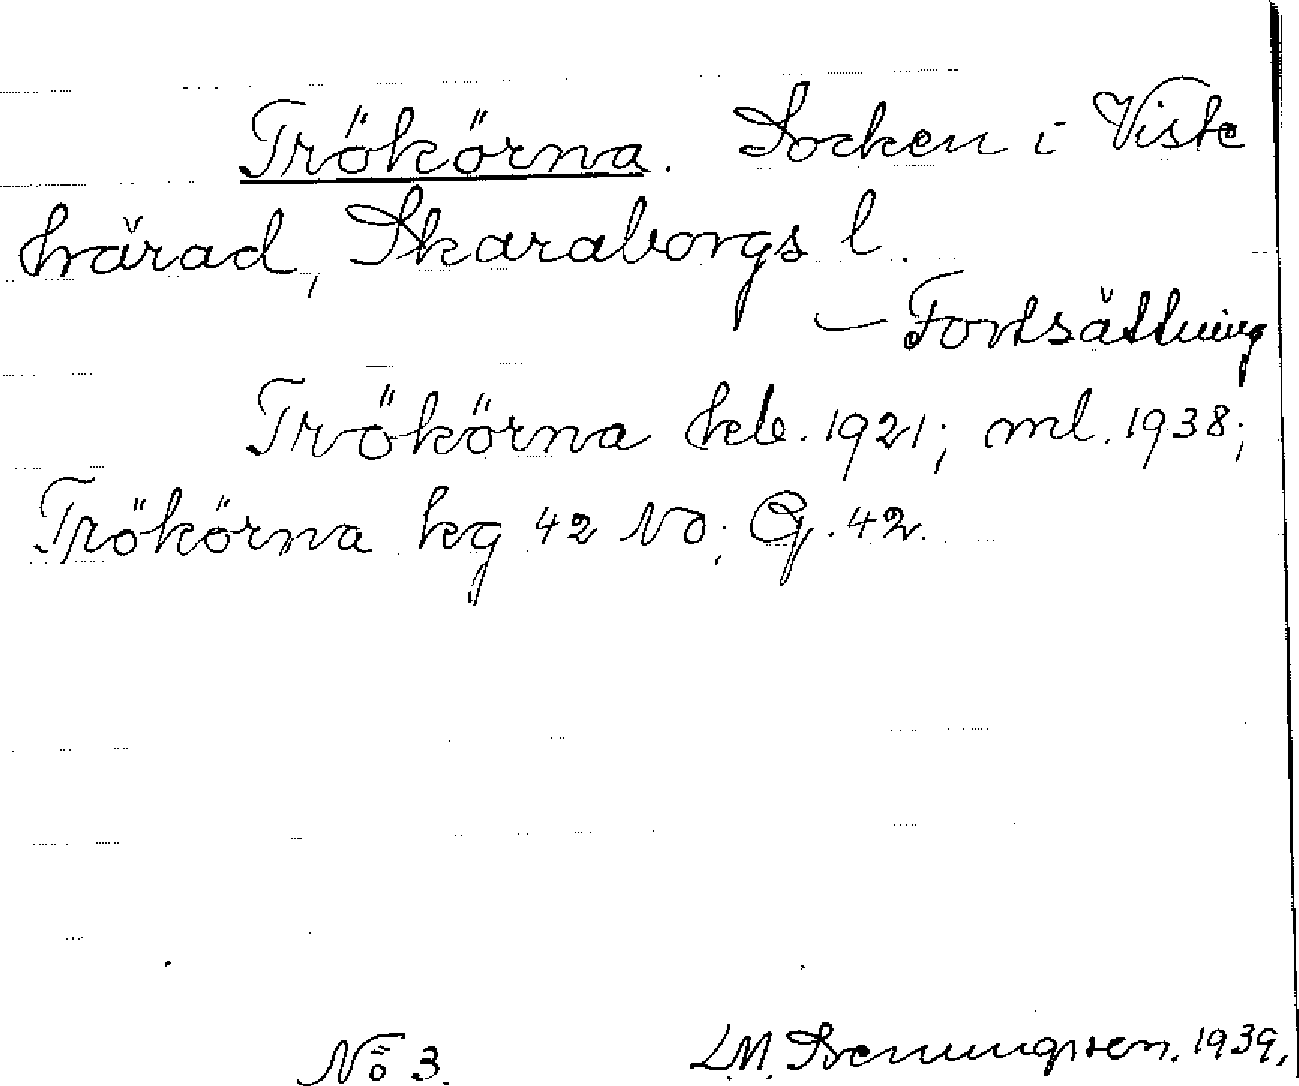 Trökörna. Socken i Viste
härad, Skaraborgs l.
— Fortsättning
Trökörna kb. 1921; ml. 1938;
Trökörna kg 42 NO; G. 42.
No 3.
L.M. 1939.